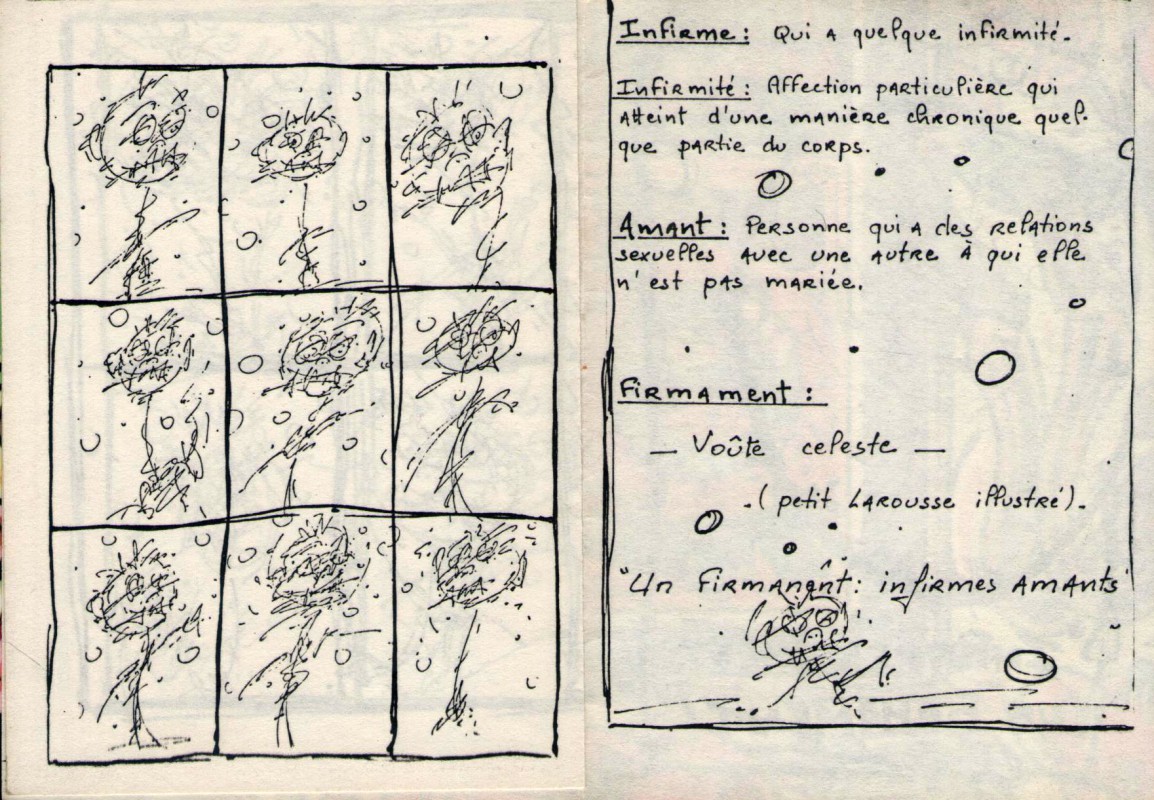 Infirme : Qui a quelque infirmité.
Infirmité : Affection particulière qui
atteint d'une manière chronique quel-
que partie du corps.
Amant : Personne qui a des relations
sexuelles avec une autre à qui elle
n'est pas mariée.
Firmament :
— Voûte celeste —
.( petit Larousse illustré).
"Un firmanant : infirmes amants"